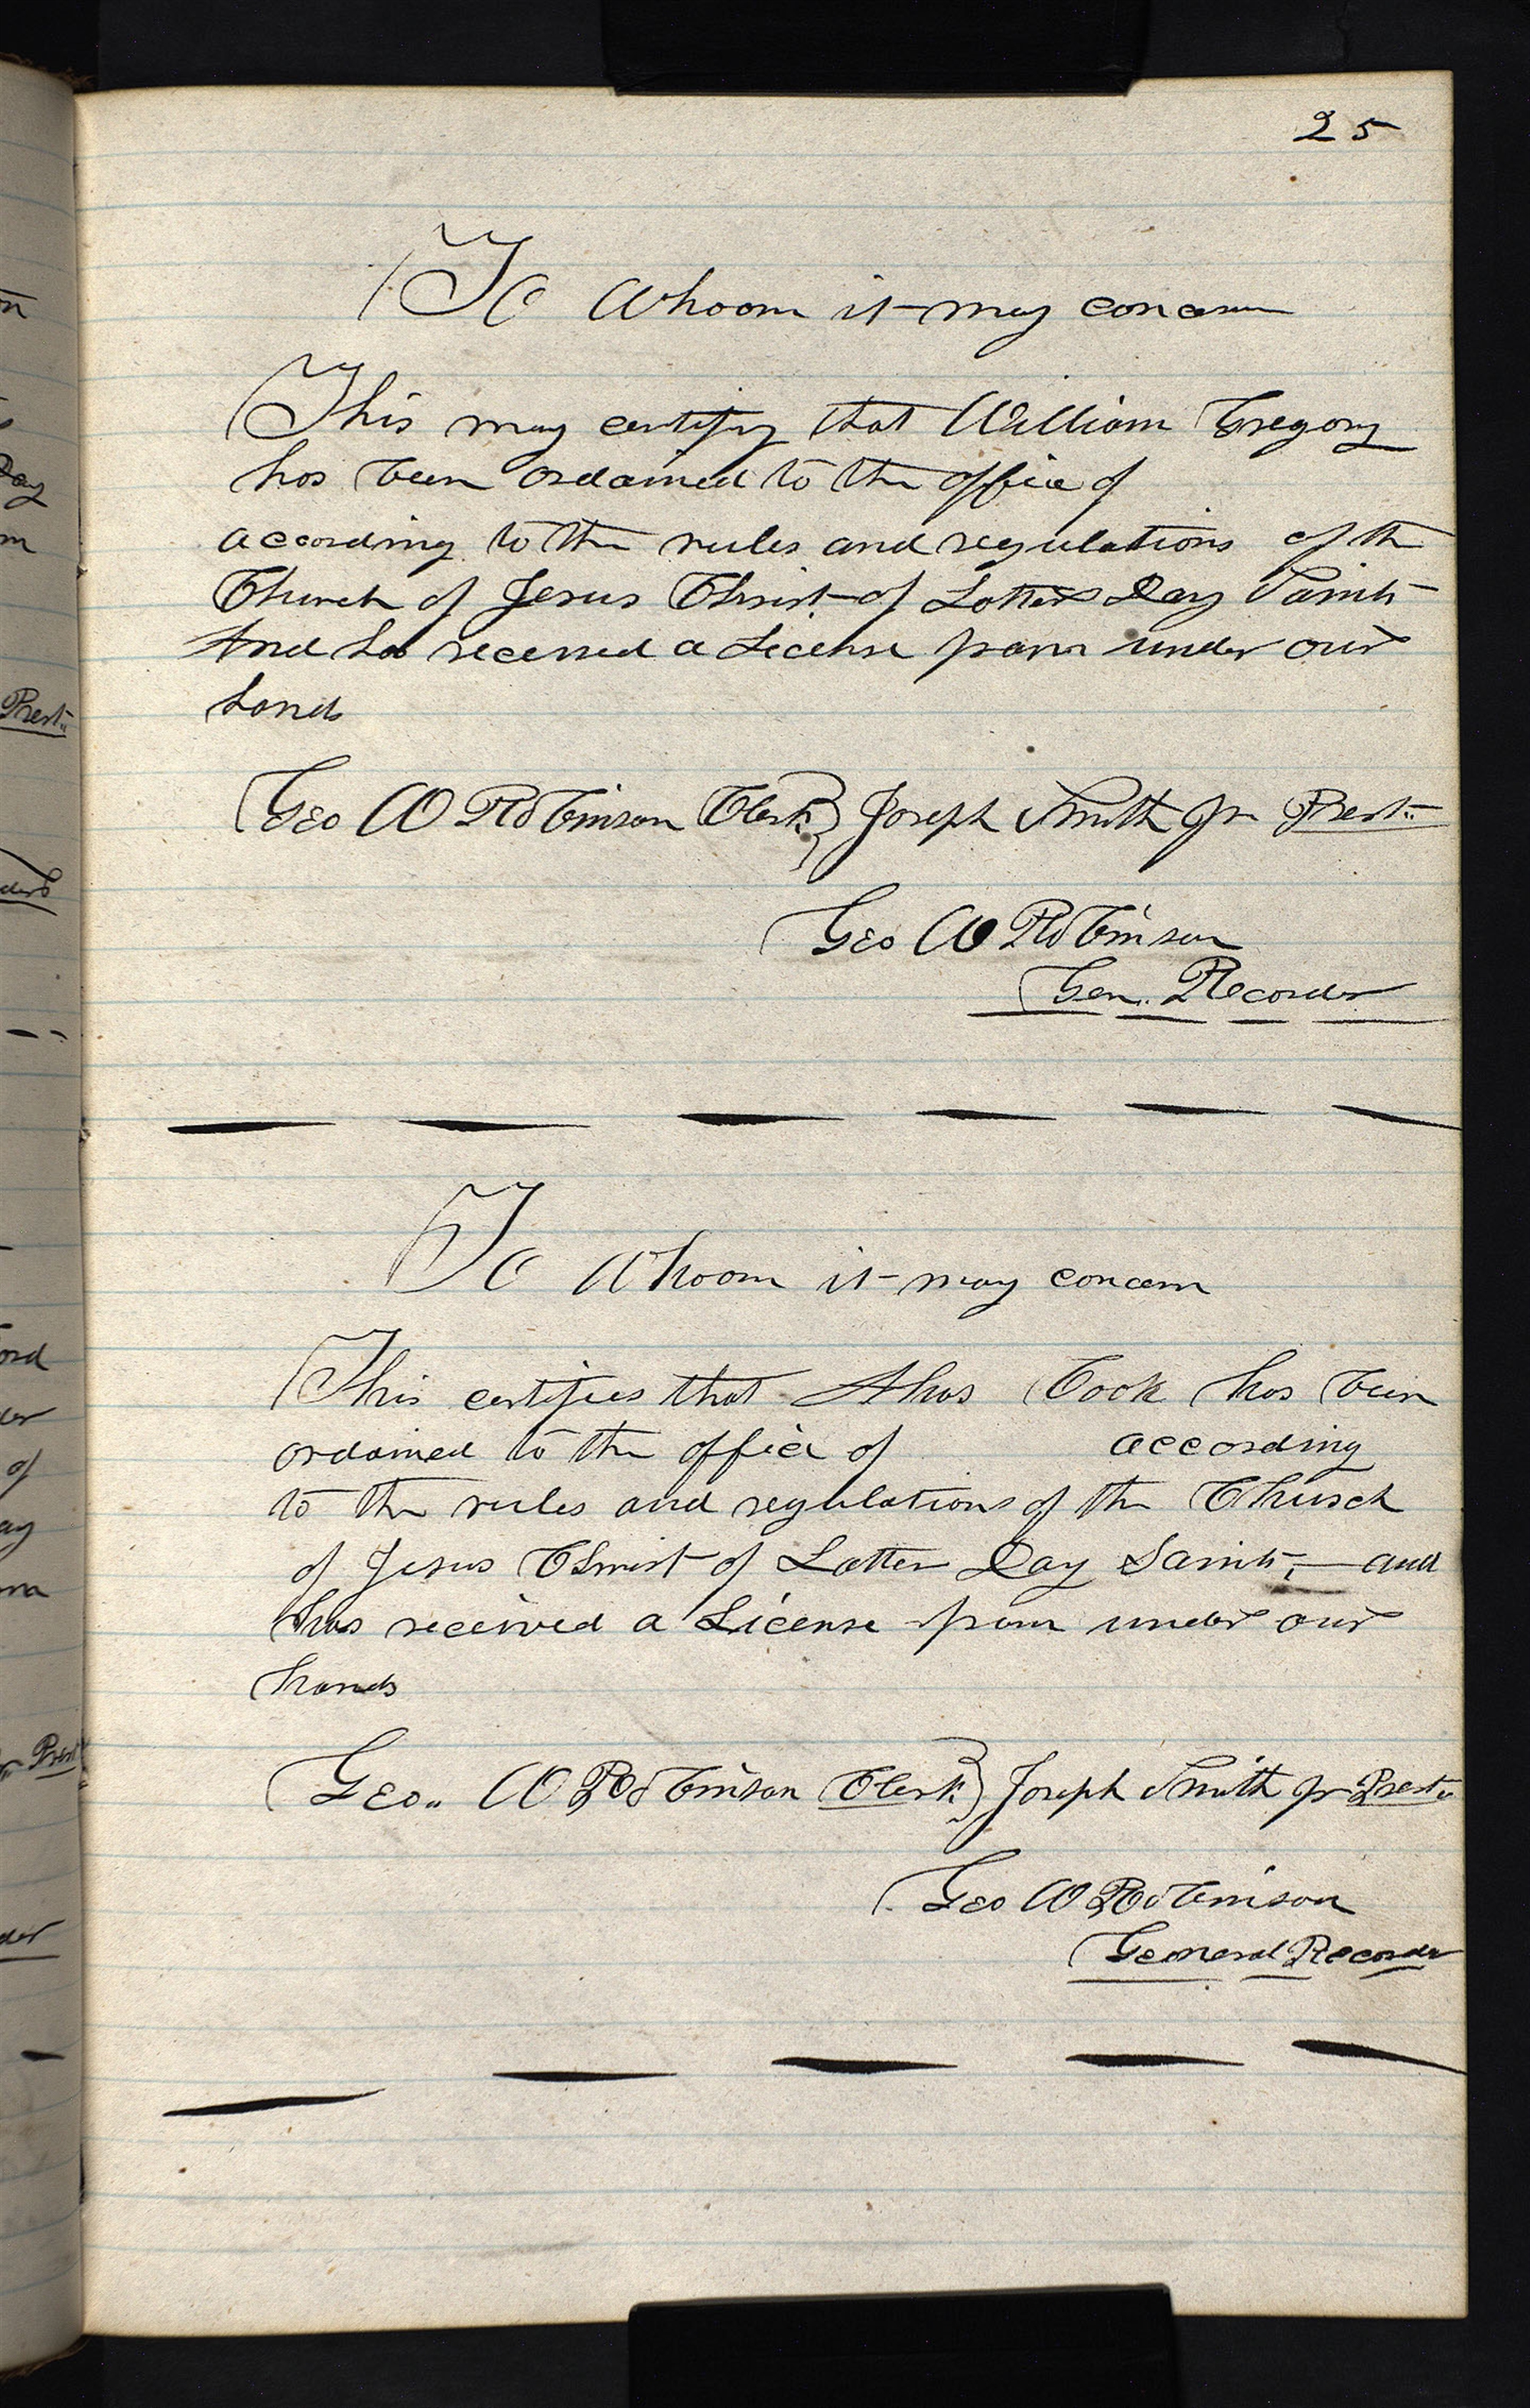 25
To Whoom it may concern
This may certify that William Gregory
has been ordained to the office of
according to the rules and regulations of the
Church of Jesus Christ of Latter Day Saints
And has received a License from under our
hands
Geo W Robinson Clerk} Joseph Smith Jr Prest.
Geo W Robinson
Gen. Recorder
To Whoom it may concern
This certifies that Ahas Cook has been
ordained to the office of according
to the rules and regulations of the Church
of Jesus Christ of Latter Day Saints, — and
has received a License from under our
hands
Geo.. W Robinson Clerk.} Joseph Smith Jr Prest..
Geo W Robinson
General Recorder